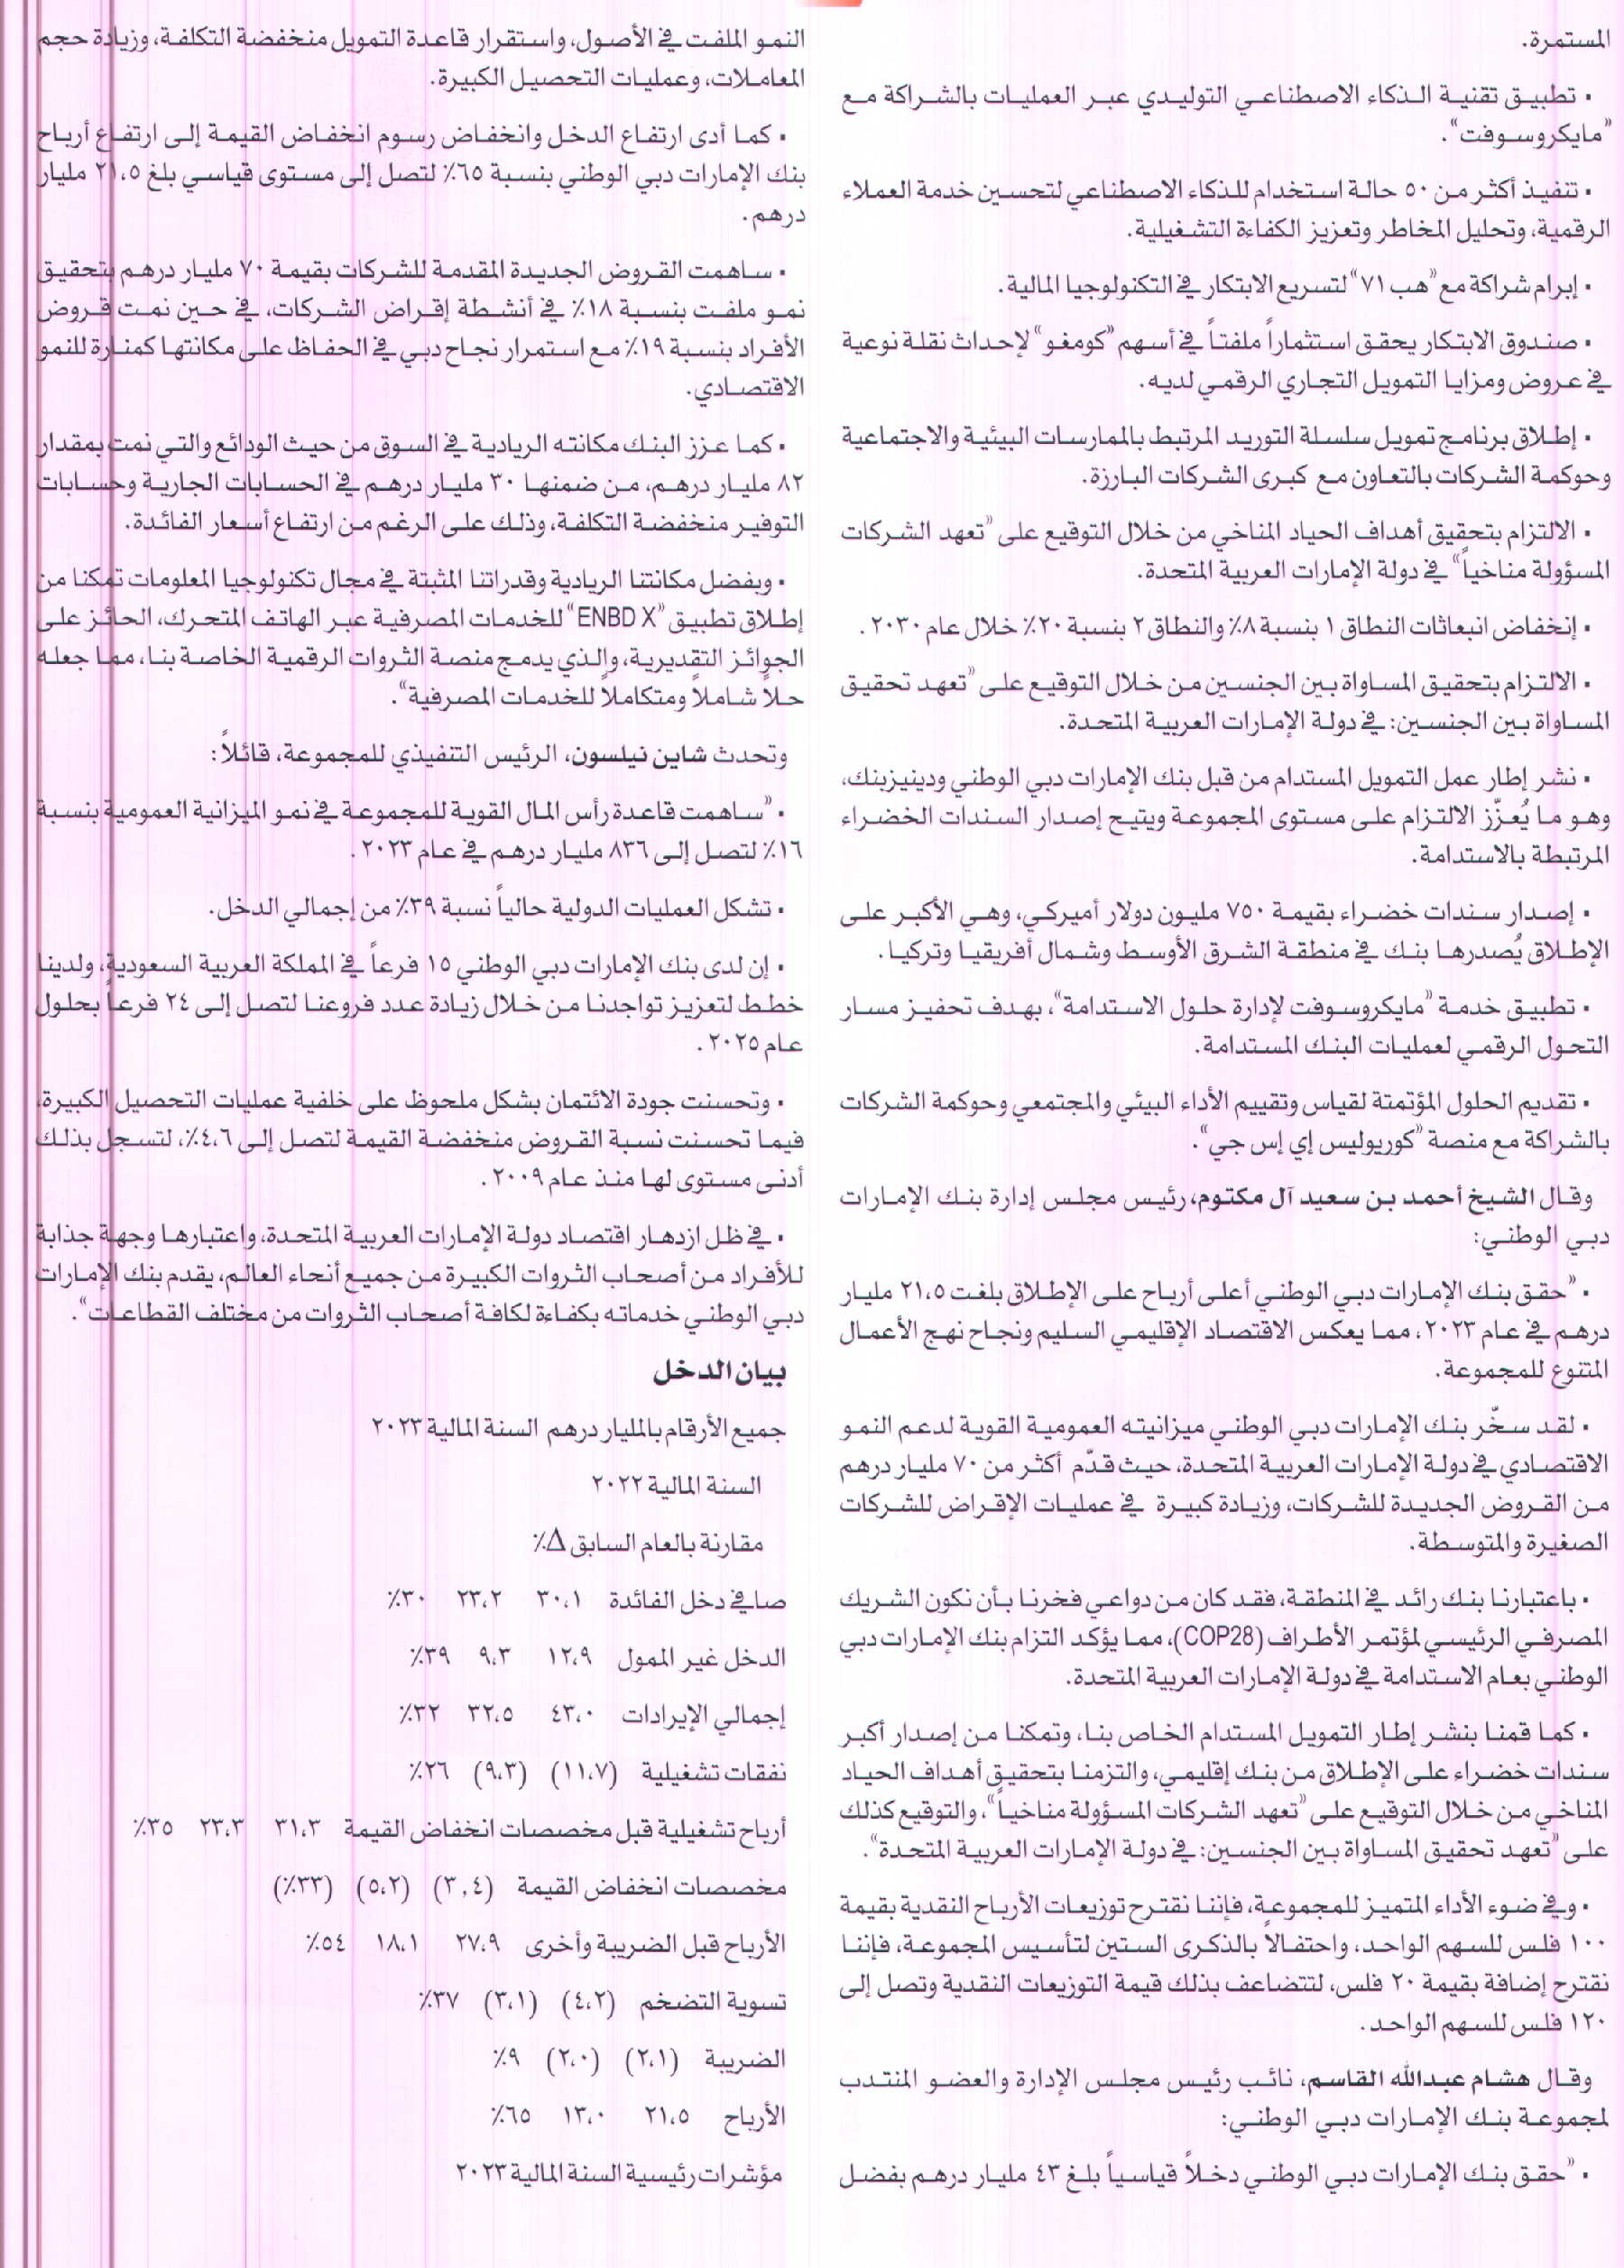 المستمرة.
• تطبيق تقنية الذكاء الاصطناعي التوليدي عبر العمليات بالشراكة مع
"مايكروسوفت".
• تنفيذ أكثر من ٥٠ حالة استخدام للذكاء الاصطناعي لتحسين خدمة العملاء
الرقمية، وتحليل المخاطر وتعزيز الكفاءة التشغيلية.
• إبرام شراكة مع "هب ٧١" لتسريع الابتكار في التكنولوجيا المالية.
• صندوق الابتكار يحقق استثماراً ملفتاً في أسهم "كومغو" لإحداث نقلة نوعية
في عروض ومزايا التمويل التجاري الرقمي لديه.
• إطلاق برنامج تمويل سلسلة التوريد المرتبط بالممارسات البيئية والاجتماعية
وحوكمة الشركات بالتعاون مع كبرى الشركات البارزة.
• الالتزام بتحقيق أهداف الحياد المناخي من خلال التوقيع على "تعهد الشركات
المسؤولة مناخياً" في دولة الإمارات العربية المتحدة.
• إنخفاض انبعاثات النطاق ١ بنسبة ٨٪ والنطاق ٢ بنسبة ٢٠٪ خلال عام ٢٠٣٠.
• الالتزام بتحقيق المساواة بين الجنسين من خلال التوقيع على "تعهد تحقيق
المساواة بين الجنسين: في دولة الإمارات العربية المتحدة.
• نشر إطار عمل التمويل المستدام من قبل بنك الإمارات دبي الوطني ودينيزبنك،
وهو ما يُعزّز الالتزام على مستوى المجموعة ويتيح إصدار السندات الخضراء
المرتبطة بالاستدامة.
• إصدار سندات خضراء بقيمة ٧٥٠ مليون دولار أميركي، وهي الأكبر على
الإطلاق يُصدرها بنك في منطقة الشرق الأوسط وشمال أفريقيا وتركيا.
• تطبيق خدمة "مايكروسوفت لإدارة حلول الاستدامة"، بهدف تحفيز مسار
التحول الرقمي لعمليات البنك المستدامة.
• تقديم الحلول المؤتمتة لقياس وتقييم الأداء البيئي والمجتمعي وحوكمة الشركات
بالشراكة مع منصة "كوريوليس إي إس جي".
وقال الشيخ أحمد بن سعيد آل مكتوم، رئيس مجلس إدارة بنك الإمارات
دبي الوطني:
• "حقق بنك الإمارات دبي الوطني أعلى أرباح على الإطلاق بلغت ٢١،٥ مليار
درهم في عام ٢٠٢٣، مما يعكس الاقتصاد الإقليمي السليم ونجاح نهج الأعمال
المتنوع للمجموعة.
• لقد سخّر بنك الإمارات دبي الوطني ميزانيته العمومية القوية لدعم النمو
الاقتصادي في دولة الإمارات العربية المتحدة، حيث قدّم أكثر من ٧٠ مليار درهم
من القروض الجديدة للشركات، وزيادة كبيرة في عمليات الإقراض للشركات
الصغيرة والمتوسطة.
• باعتبارنا بنك رائد في المنطقة، فقد كان من دواعي فخرنا بأن نكون الشريك
المصرفي الرئيسي لمؤتمر الأطراف (COP28)، مما يؤكد التزام بنك الإمارات دبي
الوطني بعام الاستدامة في دولة الإمارات العربية المتحدة.
• كما قمنا بنشر إطار التمويل المستدام الخاص بنا، وتمكنا من إصدار أكبر
سندات خضراء على الإطلاق من بنك إقليمي، والتزمنا بتحقيق أهداف الحياد
المناخي من خلال التوقيع على "تعهد الشركات المسؤولة مناخياً"، والتوقيع كذلك
على "تعهد تحقيق المساواة بين الجنسين: في دولة الإمارات العربية المتحدة".
• وفي ضوء الأداء المتميز للمجموعة، فإننا نقترح توزيعات الأرباح النقدية بقيمة
١٠٠ فلس للسهم الواحد، واحتفالاً بالذكرى الستين لتأسيس المجموعة، فإننا
نقترح إضافة بقيمة ٢٠ فلس، لتتضاعف بذلك قيمة التوزيعات النقدية وتصل إلى
١٢٠ فلس للسهم الواحد.
وقال هشام عبدالله القاسم، نائب رئيس مجلس الإدارة والعضو المنتدب
لمجموعة بنك الإمارات دبي الوطني:
• "حقق بنك الإمارات دبي الوطني دخلاً قياسياً بلغ ٤٣ مليار درهم بفضل
النمو الملفت في الأصول، واستقرار قاعدة التمويل منخفضة التكلفة، وزيادة حجم
المعاملات، وعمليات التحصيل الكبيرة.
• كما أدى ارتفاع الدخل وانخفاض رسوم انخفاض القيمة إلى ارتفاع أرباح
بنك الإمارات دبي الوطني بنسبة ٦٥٪ لتصل إلى مستوى قياسي بلغ ٢١،٥ مليار
درهم.
• ساهمت القروض الجديدة المقدمة للشركات بقيمة ٧٠ مليار درهم بتحقيق
نمو ملفت بنسبة ١٨٪ في أنشطة إقراض الشركات، في حين نمت قروض
الأفراد بنسبة ١٩٪ مع استمرار نجاح دبي في الحفاظ على مكانتها كمنارة للنمو
الاقتصادي.
• كما عزز البنك مكانته الريادية في السوق من حيث الودائع والتي نمت بمقدار
٨٢ مليار درهم، من ضمنها ٣٠ مليار درهم في الحسابات الجارية وحسابات
التوفير منخفضة التكلفة، وذلك على الرغم من ارتفاع أسعار الفائدة.
• وبفضل مكانتنا الريادية وقدراتنا المثبتة في مجال تكنولوجيا المعلومات تمكنا من
إطلاق تطبيق "ENBD X" للخدمات المصرفية عبر الهاتف المتحرك، الحائز على
الجوائز التقديرية، والذي يدمج منصة الثروات الرقمية الخاصة بنا، مما جعله
حلاً شاملاً ومتكاملاً للخدمات المصرفية".
وتحدث شاين نيلسون، الرئيس التنفيذي للمجموعة، قائلاً:
• "ساهمت قاعدة رأس المال القوية للمجموعة في نمو الميزانية العمومية بنسبة
١٦٪ لتصل إلى ٨٣٦ مليار درهم في عام ٢٠٢٣.
• تشكل العمليات الدولية حالياً نسبة ٣٩٪ من إجمالي الدخل.
• إن لدى بنك الإمارات دبي الوطني ١٥ فرعاً في المملكة العربية السعودية، ولدينا
خطط لتعزيز تواجدنا من خلال زيادة عدد فروعنا لتصل إلى ٢٤ فرعاً بحلول
عام ٢٠٢٥.
• وتحسنت جودة الائتمان بشكل ملحوظ على خلفية عمليات التحصيل الكبيرة،
فيما تحسنت نسبة القروض منخفضة القيمة لتصل إلى ٤،٦٪، لتسجل بذلك
أدنى مستوى لها منذ عام ٢٠٠٩.
• في ظل ازدهار اقتصاد دولة الإمارات العربية المتحدة، واعتبارها وجهة جذابة
للأفراد من أصحاب الثروات الكبيرة من جميع أنحاء العالم، يقدم بنك الإمارات
دبي الوطني خدماته بكفاءة لكافة أصحاب الثروات من مختلف القطاعات".
بيان الدخل
جميع الأرقام بالمليار درهم السنة المالية ٢٠٢٣
السنة المالية ٢٠٢٢
مقارنة بالعام السابق Δ٪
صافي دخل الفائدة ٣٠،١ ٢٣،٢ ٣٠٪
الدخل غير الممول ١٢،٩ ٩،٣ ٣٩٪
إجمالي الإيرادات ٤٣،٠ ٣٢،٥ ٣٢٪
نفقات تشغيلية (١١،٧) (٩،٣) ٢٦٪
أرباح تشغيلية قبل مخصصات انخفاض القيمة ٣١،٣ ٢٣،٣ ٣٥٪
مخصصات انخفاض القيمة (٣,٤) (٥،٢) (٣٣٪)
الأرباح قبل الضريبة وأخرى ٢٧،٩ ١٨،١ ٥٤٪
تسوية التضخم (٤،٢) (٣،١) ٣٧٪
الضريبة (٢،١) (٢،٠) ٩٪
الأرباح ٢١،٥ ١٣،٠ ٦٥٪
مؤشرات رئيسية السنة المالية ٢٠٢٣